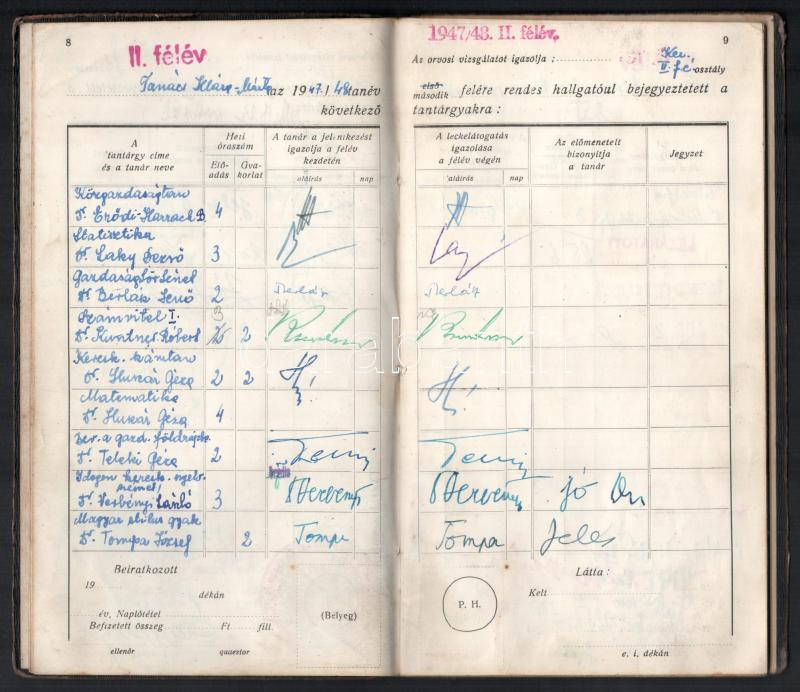 8
II. félév
Tanács Klára-Márta az 1947/48 tanév
következő
A
tantárgy címe
és a tanár neve
Heti
óraszám
Elő-
adás
Gya-
korlat
A tanár a jelentkezést
igazolja a félév
kezdetén
aláírás
nap
Közgazdaságtan
Dr. Erődi-Harrach B. 4
Statisztika
Dr. Laky Dezső 3
Gazdaságtörténet
Dr. Berlász Jenő 2
Számvitel I. 3
Róbert 2
Keresk. számtan
Dr. Huszár Géza 2 2
Matematika
Dr. Huszár Géza 4
Bev. a gazd. földrajzba
Dr. Teleki Géza 2
Idegen keresk. nyelv
német
László 3
Magyar stílus gyak
Dr. Tompa József 2
Tompa
Beiratkozott
19
dékán
év, Naplótétel
Befizetett összeg Ft fill.
ellenőr
quaestor
(Bélyeg)
1947/48. II. félév.
9
Az orvosi vizsgálatot igazolja :
Ker.
II. fé osztály
első
második felére rendes hallgatóul bejegyeztetett a
tantárgyakra :
A leckelátogatás
igazolása
a félév végén
aláírás
nap
Az előmenetelt
bizonyítja
a tanár
Jegyzet
jó
Tompa Jeles
P. H.
Látta :
Kelt
e. i. dékán